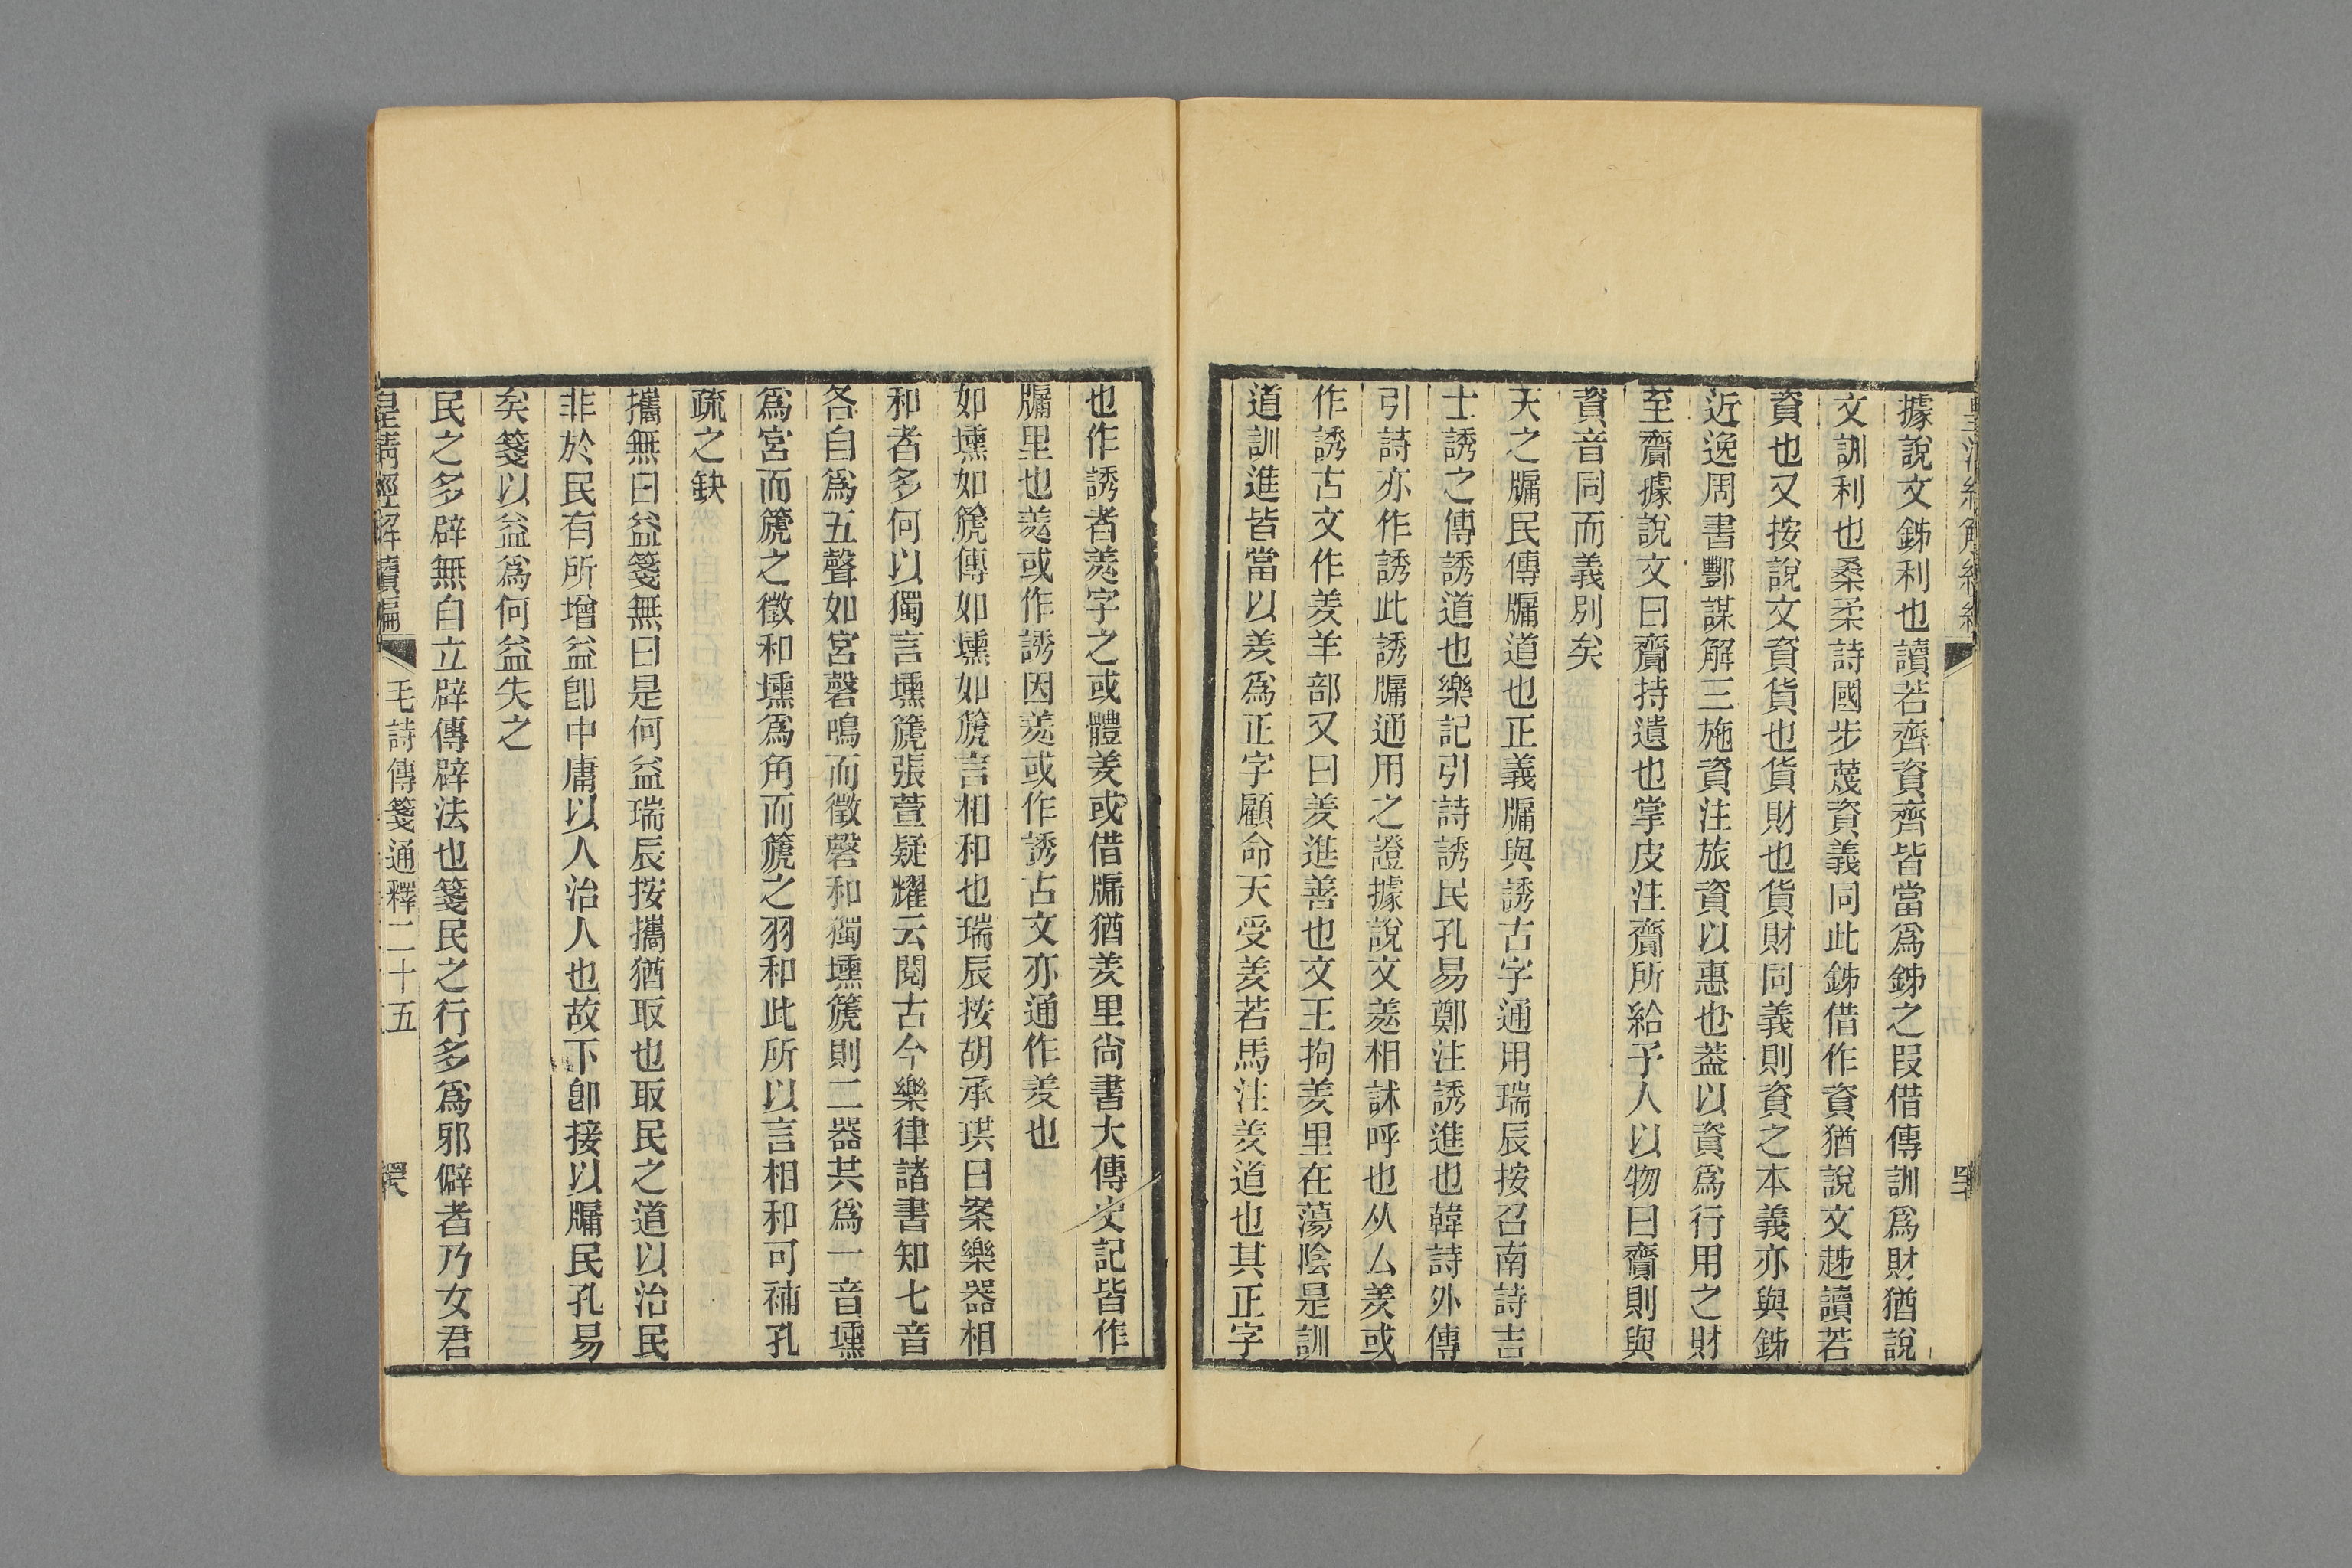 據說文銻利也讀若齊資齊皆當爲銻之叚借傳訓爲財猶說
文訓利也桑柔詩國步蔑資義同此銻借作資猶說文趀讀若
資也又按說文資貨也貨財也貨財同義則資之本義亦與銻
近逸周書酆謀解三施資注旅資以惠也葢以資爲行用之財
至齎據說文曰齎持遺也掌皮注齎所給予人以物曰齎則與
資音同而義別矣
天之牖民傳牖道也正義牖與誘古字通用瑞辰按召南詩吉
士誘之傳誘道也樂記引詩誘民孔易鄭注誘進也韓詩外傳
引詩亦作誘此誘牖通用之證據說文羑相訹呼也从厶羑或
作誘古文作羑羊部又曰羑進善也文王拘羑里在蕩陰是訓
道訓進皆當以羑爲正字顧命天受羑若馬注羑道也其正字
也作誘者羑字之或體羑或借牖猶羑里尙書大傳史記皆作
牖里也羑或作誘因羑或作誘古文亦通作羑也
如壎如篪傳如壎如篪言相和也瑞辰按胡承珙曰案樂器相
和者多何以獨言壎篪張萱疑耀云閱古今樂律諸書知七音
各自爲五聲如宮磬鳴而徵磬和獨壎篪則二器共爲一音壎
爲宮而篪之徵和壎爲角而篪之羽和此所以言相和可補孔
疏之缺
攜無曰益箋無曰是何益瑞辰按攜猶取也取民之道以治民
非於民有所增益卽中庸以人治人也故下卽接以牖民孔易
矣箋以益爲何益失之
民之多辟無自立辟傳辟法也箋民之行多爲邪僻者乃女君
皇淸經解續編 毛詩傳箋通釋二十五